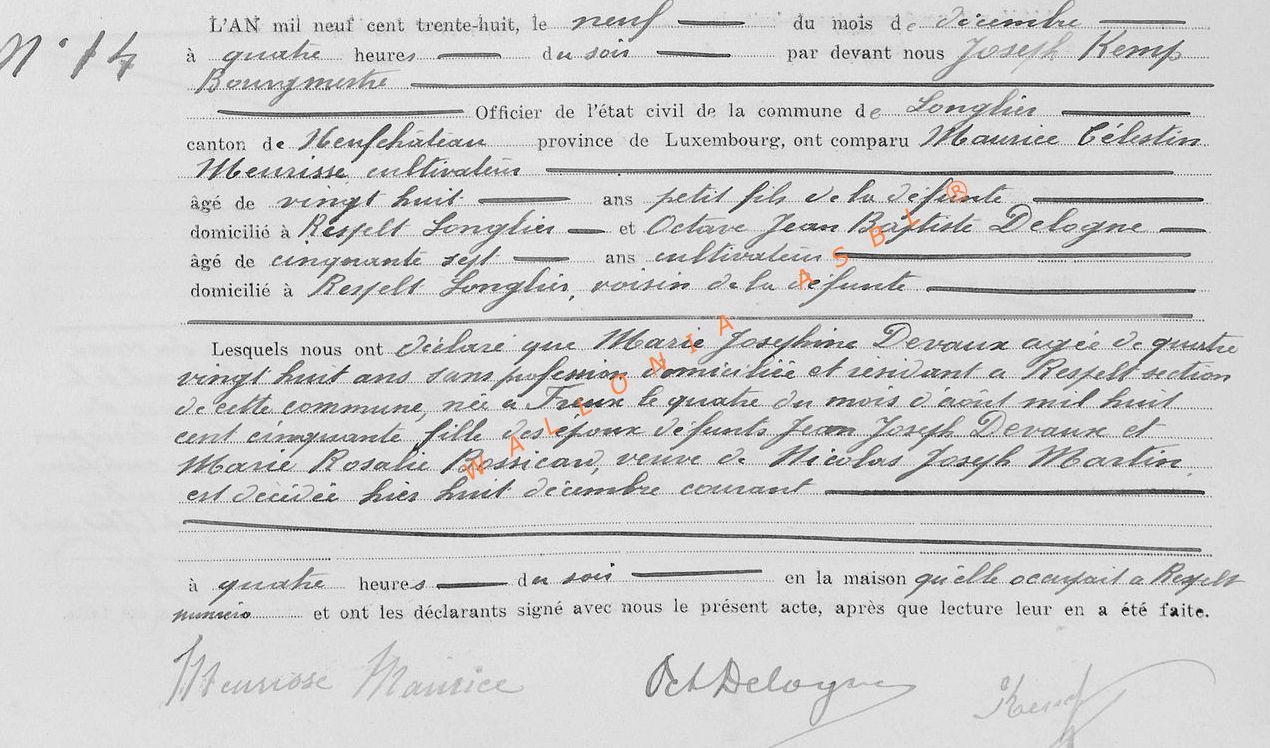 N° 14
L'AN mil neuf cent trente-huit, le neuf du mois de décembre
à quatre heures du soir par devant nous Joseph Kemp
Bourgmestre
Officier de l'état civil de la commune de Longlier
canton de Neufchâteau province de Luxembourg, ont comparu Maurice Célestin
Meurisse cultivateur
âgé de vingt huit ans petit fils de la défunte
domicilié à Respelt Longlier et Octave Jean Baptiste Delogne
âgé de cinquante sept ans cultivateur
domicilié à Respelt Longlier, voisin de la défunte
Lesquels nous ont déclaré que Marie Josephine Devaux agée de quatre
vingt huit ans sans profession domiciliée et résidant a Respelt section
de cette commune, née a Freux le quatre du mois d'août mil huit
cent cinquante fille des époux défunts Jean Joseph Devaux et
Marie Rosalie Bossicard, veuve de Nicolas Joseph Martin,
est décédée hier huit décembre courant
à quatre heures du soir en la maison qu'elle occupait a Respelt
numéro et ont les déclarants signé avec nous le présent acte, après que lecture leur en a été faite.
Meurisse Maurice Oct Delogne Kemp
WALLONIA ASBL ®